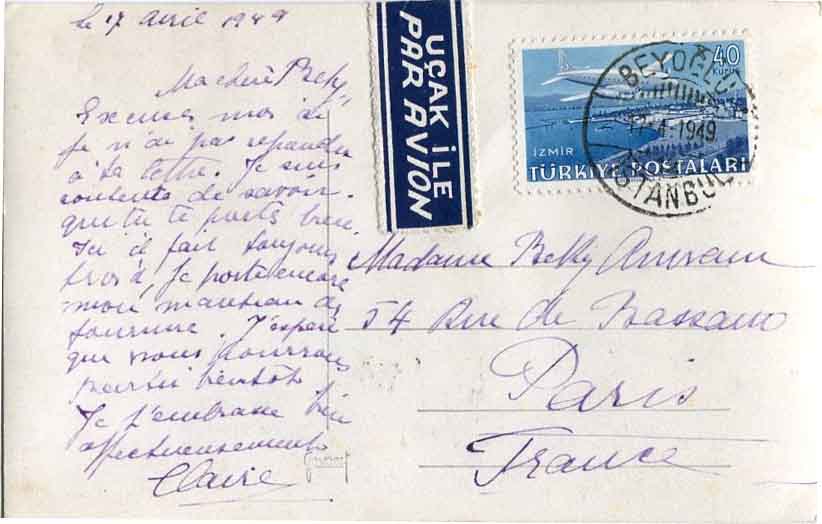 le 17 avril 1949
Ma chère Beky,
Excuses moi si
je n'ai pas repondu
à ta lettre. Je suis
contente de savoir
que tu te portes bien.
Ici il fait toujours
froid, je porte encore
mon manteau de
fourrure. J'espère
que nous pourrons
partir bientôt
Je t'embrasse bien
affectueusement
Claire
UÇAK İLE
PAR AVION
40
KURUŞ
İZMİR
TÜRKİYE POSTALARI
BEYOĞLU
17-4-1949
İSTANBUL
Madame Beky
54 Rue de Bassano
Paris
France